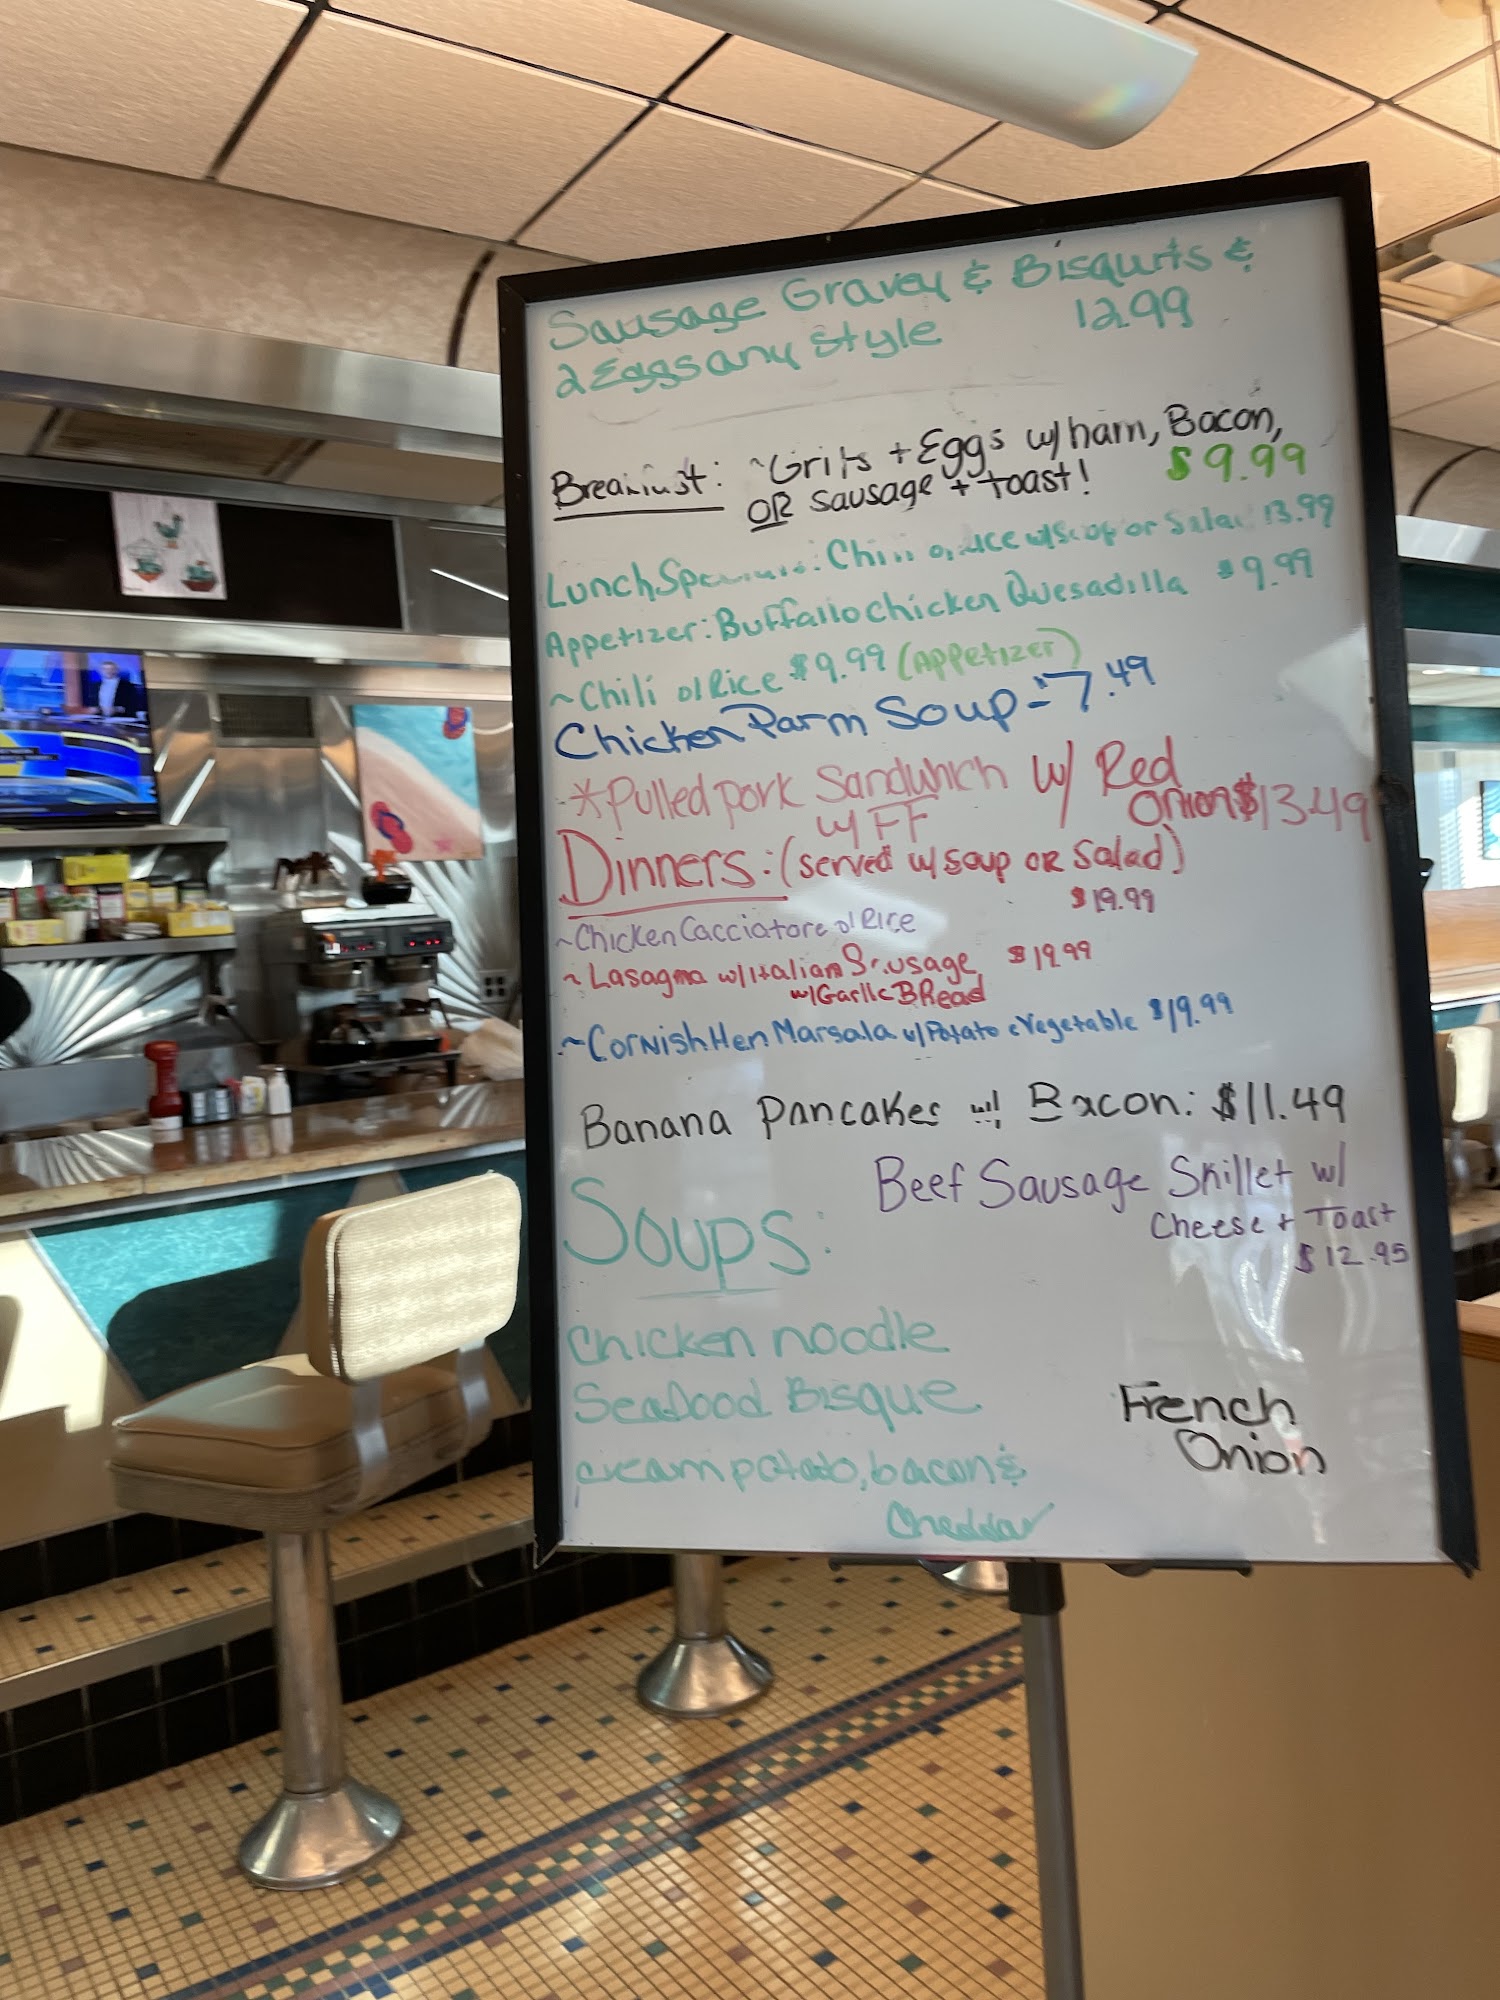 Sausage Gravey & Bisquits &
2 Eggs any style 12.99
Breakfust: ~Grits + Eggs w/ham, Bacon,
OR sausage + toast! $9.99
Lunch Specials: Chili o/rice w/Soup or Salad 13.99
Appetizer: Buffallo chicken Quesadilla $9.99
~Chili o/Rice $9.99 (Appetizer)
Chicken Parm Soup - $7.49
*Pulled pork Sandwhich w/ Red
w/ FF Onion $13.49
Dinners: (served w/ soup OR Salad)
~Chicken Cacciatore o/Rice $19.99
~Lasagna w/Italian Sausage $19.99
w/Garlic BRead
~Cornish Hen Marsala w/Potato & Vegetable $19.99
Banana Pancakes w/ Bacon: $11.49
Soups: Beef Sausage Skillet w/
Cheese + Toast
$12.95
Chicken noodle
Seafood Bisque French
Onion
cream potato, bacon &
Cheddar